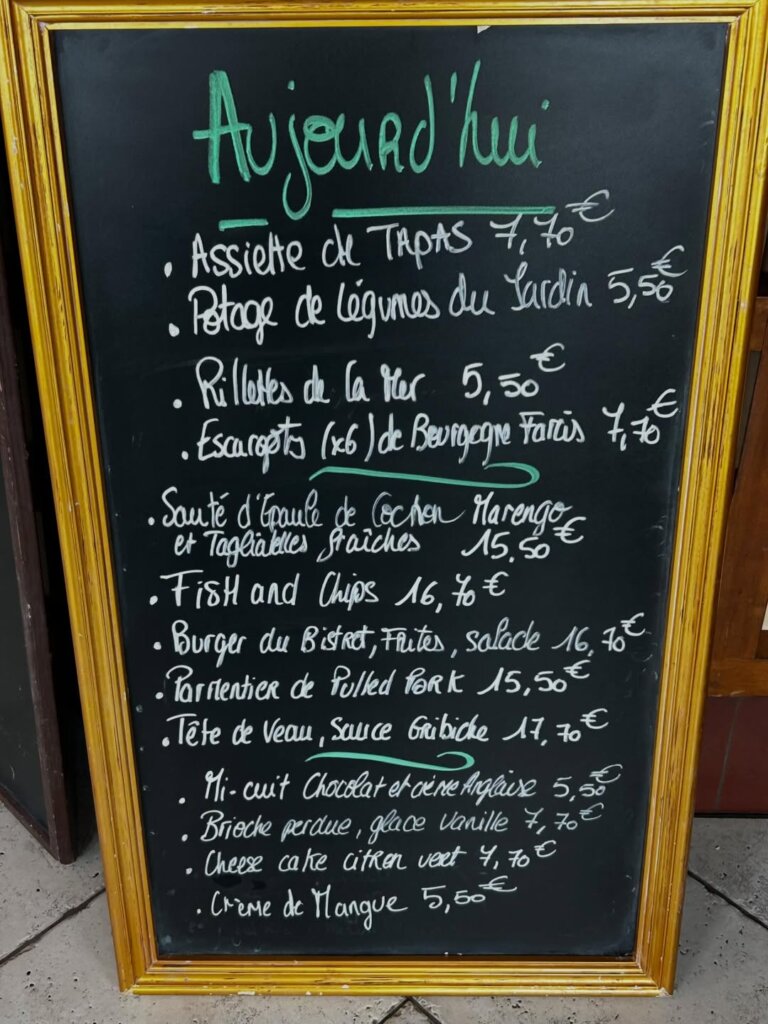 Aujourd'hui
. Assiette de TAPAS 7,70€
. Potage de légumes du Jardin 5,50€
. Rillettes de la Mer 5,50€
. Escargots (x6) de Bourgogne Farcis 7,70€
. Sauté d'Epaule de Cochon Marengo
et Tagliatelles fraîches 15,50€
. FisH and Chips 16,70€
. Burger du Bistrot, Frites, salade 16,70€
. Parmentier de Pulled PORK 15,50€
. Tête de Veau, Sauce Gribiche 17,70€
. Mi-cuit Chocolat et crème Anglaise 5,50€
. Brioche perdue, glace vanille 7,70€
. Cheese cake citron vert 7,70€
. Crème de Mangue 5,50€